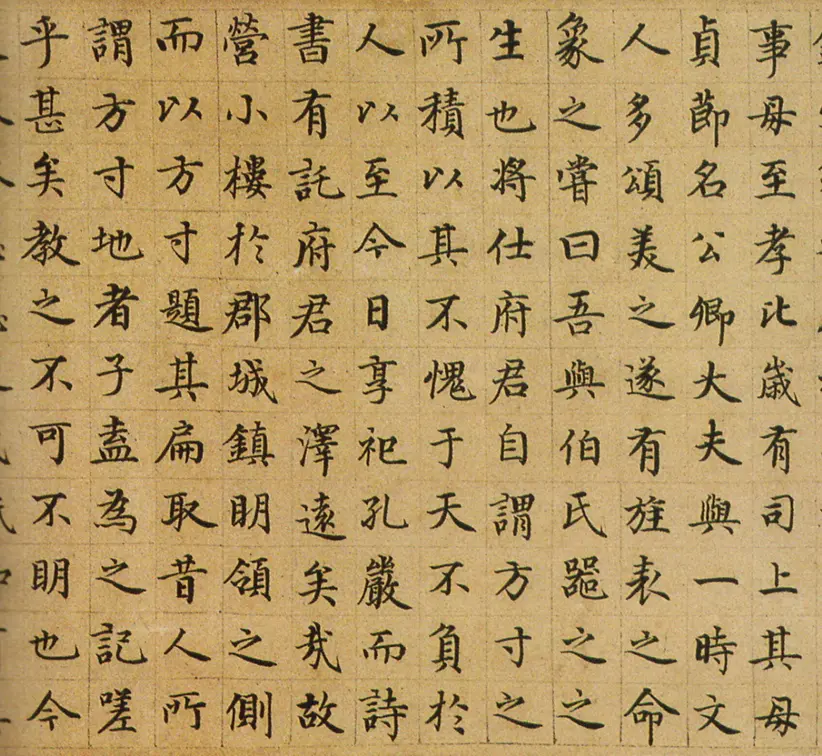 事母至孝比歲有司上其母
貞節名公卿大夫與一時文
人多頌美之遂有旌表之命
象之嘗曰吾與伯氏噐之之
生也將仕府君自謂方寸之
所積以其不愧于天不負於
人以至今日享祀孔嚴而詩
書有託府君之澤遠矣哉故
營小樓於郡城鎮明領之側
而以方寸題其扁取昔人所
謂方寸地者子盍為之記嗟
乎甚矣教之不可不明也今